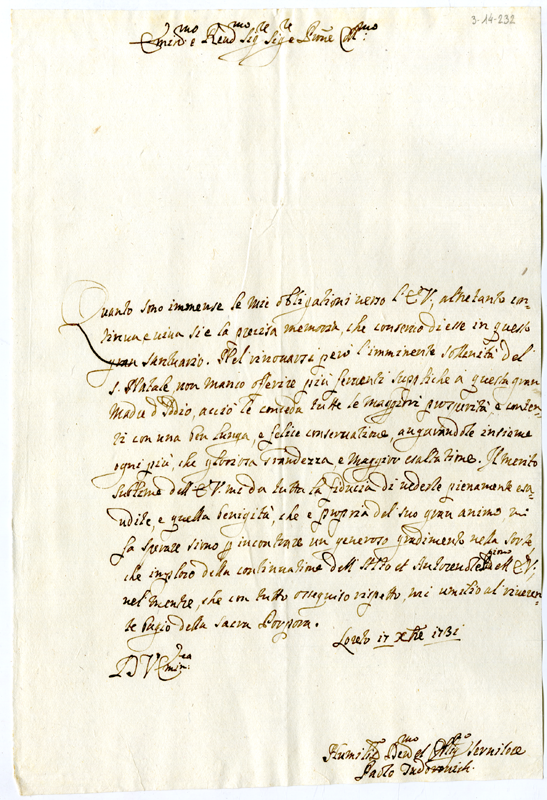 3-14-232
Emin.mo e Rend.mo Sig.re Sig.re e Prone Col.mo
Quanto sono immense le mie obligationi verso l'E.V., altretanto con-
tinua, e viva si è la precisa memoria, che conservo di esse in questo
gran santuario. Nel rinovarsi però l'imminente sollenità del
S. Natale non manco offerire più ferventi suppliche à questa gran
Madre d'Idio, acciò le conceda tutte le maggiori prosperità, e conten-
ti con una ben lunga, e felice conservatione, augurandole insieme
ogni più, che gloriosa grandezza, e maggior esaltatione. Il merito
sublime dell'E.V. mi dà tutta la fiducia di vederle pienamente esa-
udite, e quella benignità, che è propria del suo gran animo, mi
fà sperare simo p incontrare un generoso gradimento nella sorte
che imploro della continuatione dell' Alto et Autorevole dell'E.V.
nel mentre, che con tutto ossequioso rispetto, mi umilio al riveren-
te bagio della Sacra Porpora.
Loreto 17 Xbre 1731
D V Emin.za
Humiliss. Dev.mo et Obblig.mo Servitore
Paolo